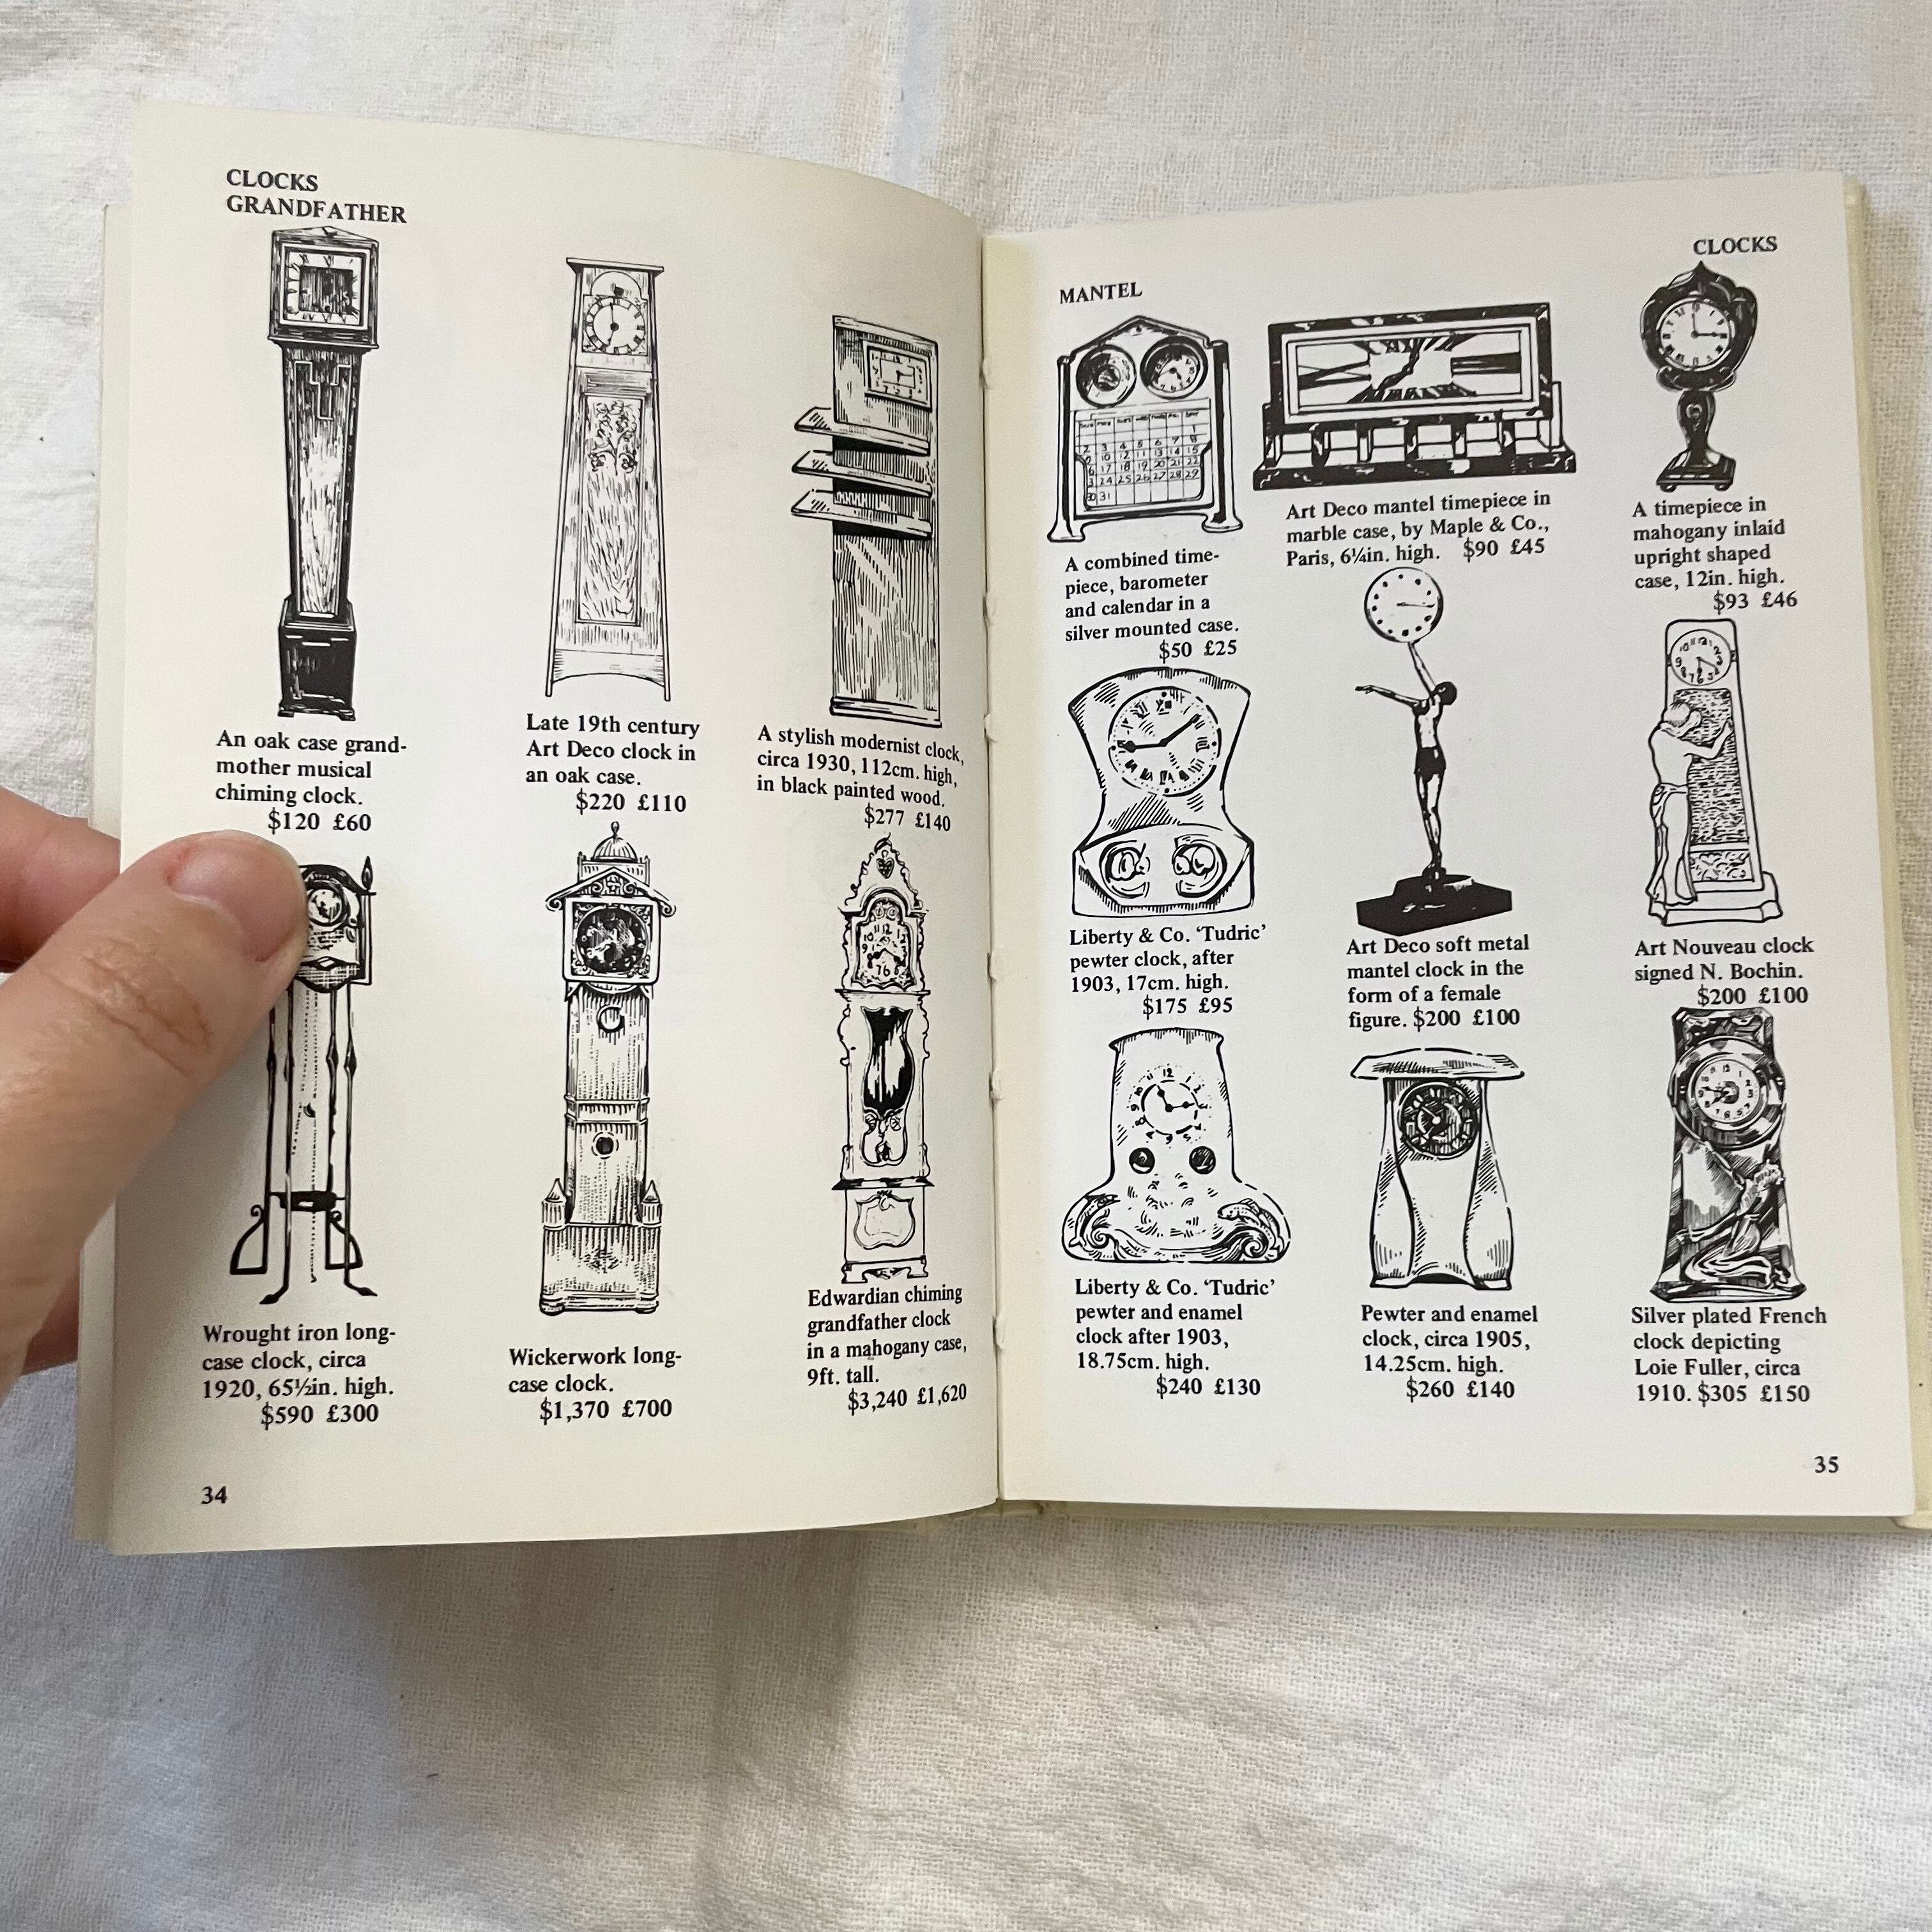 CLOCKS
GRANDFATHER
An oak case grand-
mother musical
chiming clock.
$120 £60
Late 19th century
Art Deco clock in
an oak case.
$220 £110
A stylish modernist clock,
circa 1930, 112cm. high,
in black painted wood.
$277 £140
Wrought iron long-
case clock, circa
1920, 65½in. high.
$590 £300
Wickerwork long-
case clock.
$1,370 £700
Edwardian chiming
grandfather clock
in a mahogany case,
9ft. tall.
$3,240 £1,620
34
CLOCKS
MANTEL
A combined time-
piece, barometer
and calendar in a
silver mounted case.
$50 £25
Art Deco mantel timepiece in
marble case, by Maple & Co.,
Paris, 6¼in. high. $90 £45
A timepiece in
mahogany inlaid
upright shaped
case, 12in. high.
$93 £46
Liberty & Co. ‘Tudric’
pewter clock, after
1903, 17cm. high.
$175 £95
Art Deco soft metal
mantel clock in the
form of a female
figure. $200 £100
Art Nouveau clock
signed N. Bochin.
$200 £100
Liberty & Co. ‘Tudric’
pewter and enamel
clock after 1903,
18.75cm. high.
$240 £130
Pewter and enamel
clock, circa 1905,
14.25cm. high.
$260 £140
Silver plated French
clock depicting
Loie Fuller, circa
1910. $305 £150
35